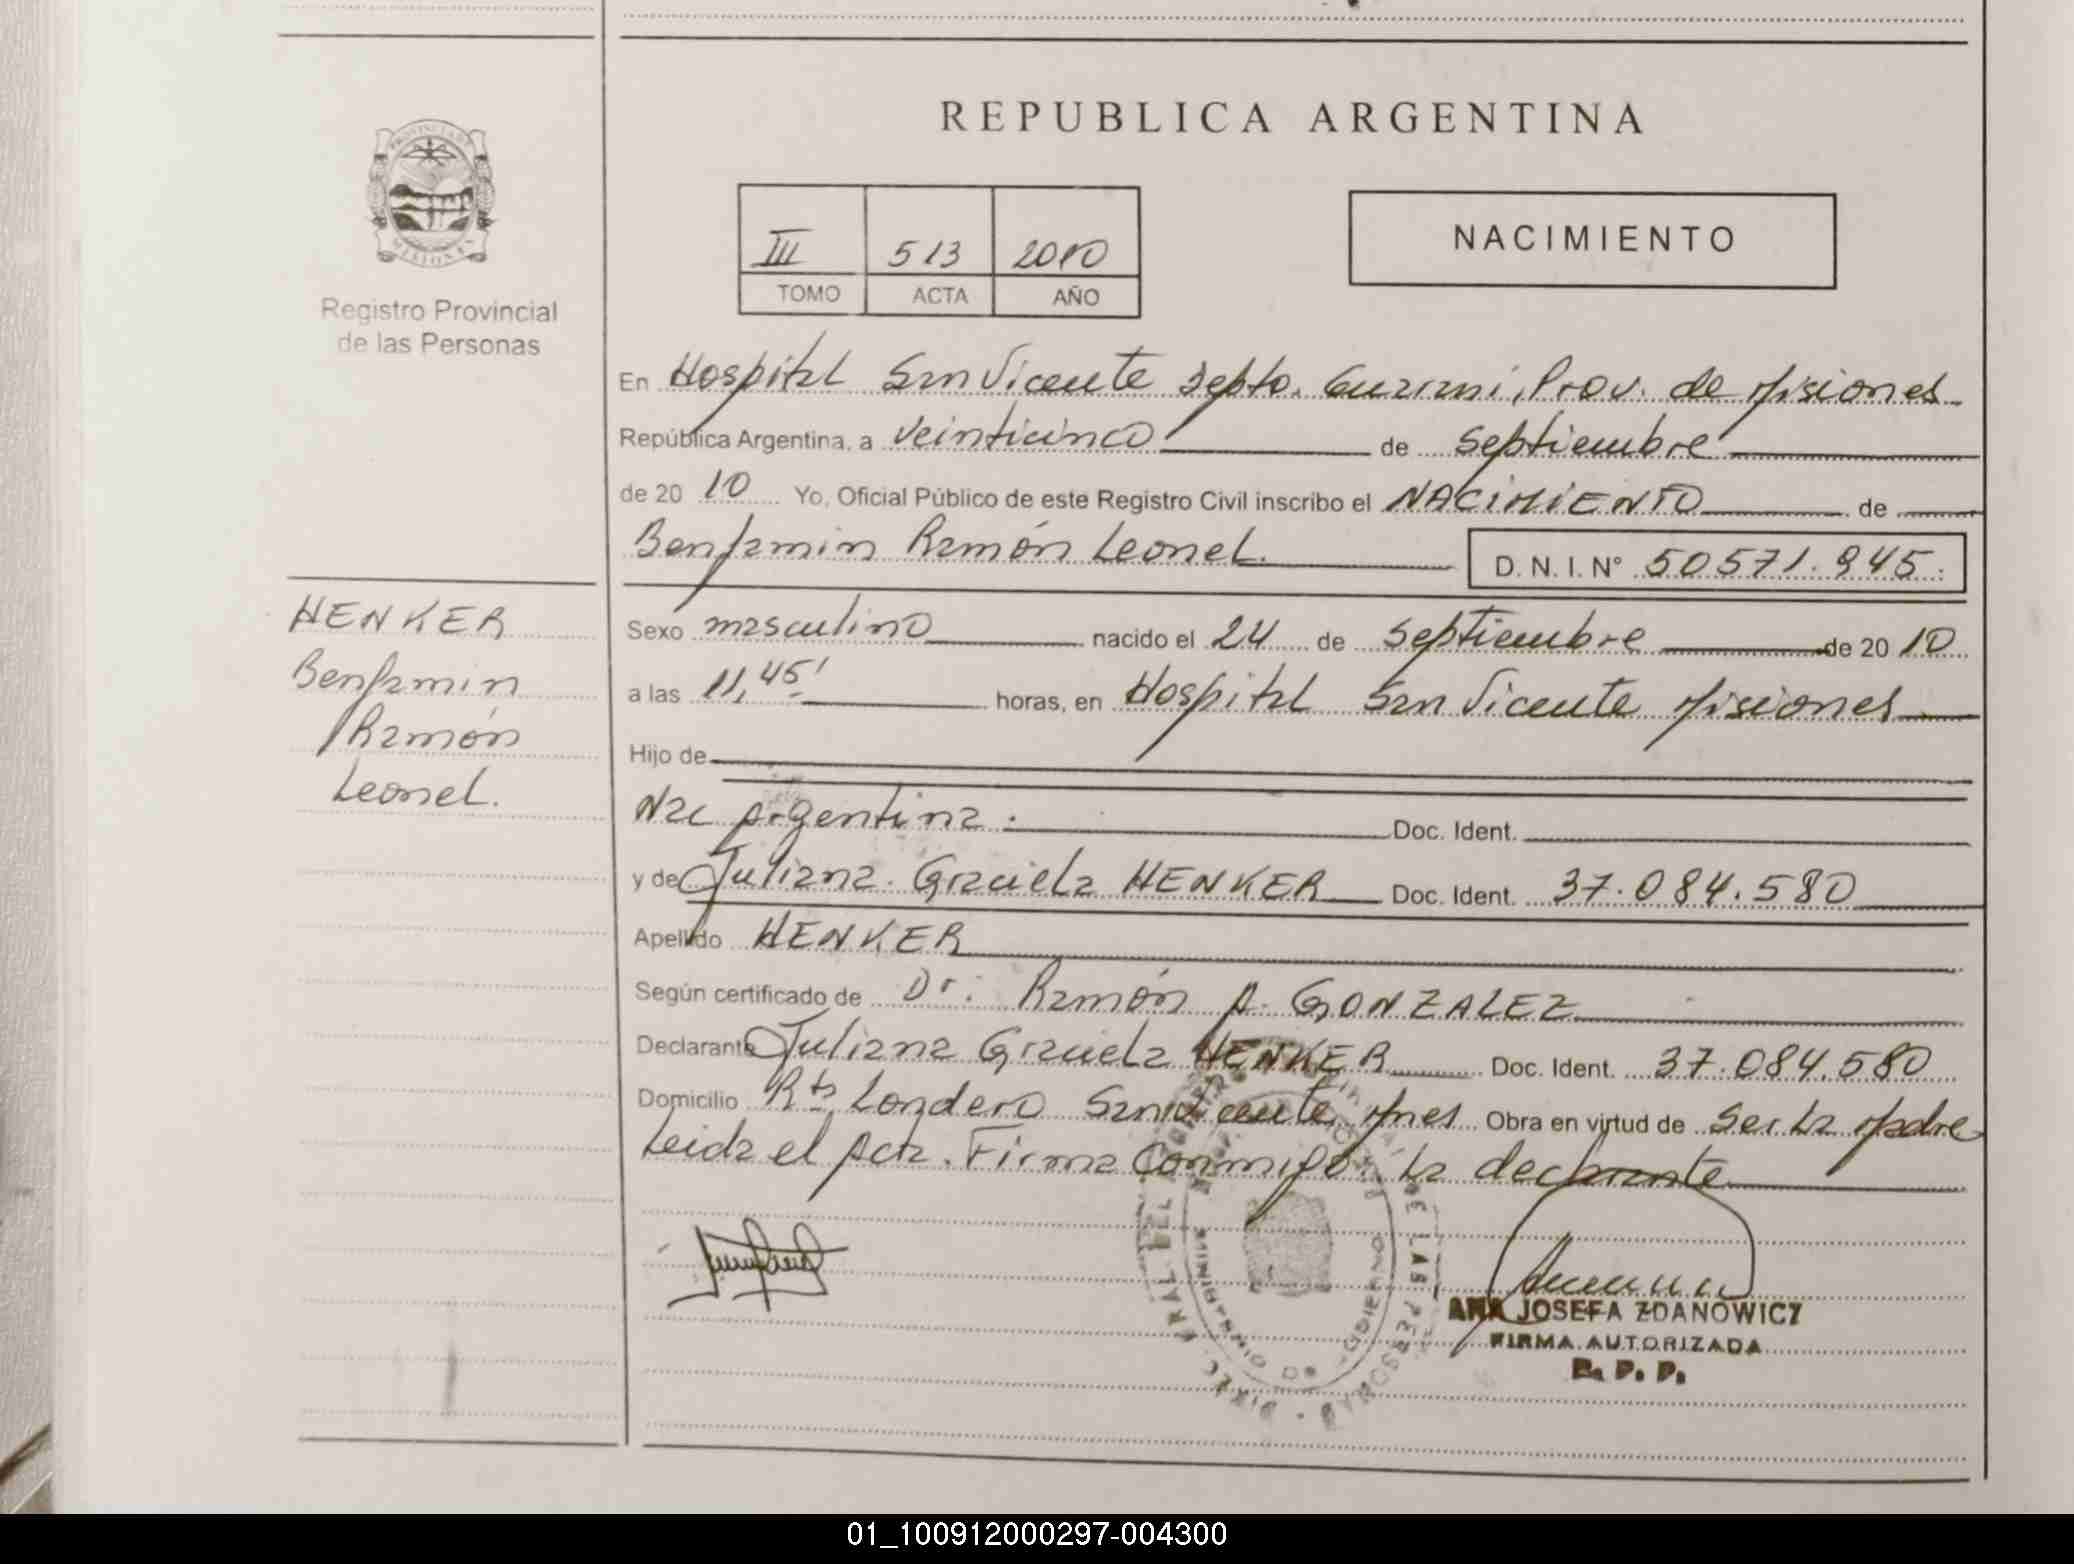 REPUBLICA ARGENTINA
III 513 2010
TOMO ACTA AÑO
NACIMIENTO
Registro Provincial
de las Personas
En Hospital San Vicente Depto. Guarani, Prov. de Misiones
República Argentina, a veinticinco de Septiembre
de 20 10 Yo, Oficial Público de este Registro Civil inscribo el NACIMIENTO de
Benjamin Ramón Leonel. D. N. I. N° 50571.945.
HENKER
Benjamin
Ramón
Leonel.
Sexo masculino nacido el 24 de Septiembre de 20 10
a las 11,45' horas, en Hospital San Vicente Misiones
Hijo de
Nac Argentina. Doc. Ident.
y de Juliana Graciela HENKER Doc. Ident. 37.084.580
Apellido HENKER
Según certificado de Dr. Ramón A. GONZALEZ
Declarante Juliana Graciela HENKER Doc. Ident. 37.084.580
Domicilio Londero San Vicente Mnes Obra en virtud de Ser La Madre
Leida el Acta. Firma Conmigo La declarante
ANA JOSEFA ZDANOWICZ
FIRMA AUTORIZADA
R. P. P.
01_100912000297-004300